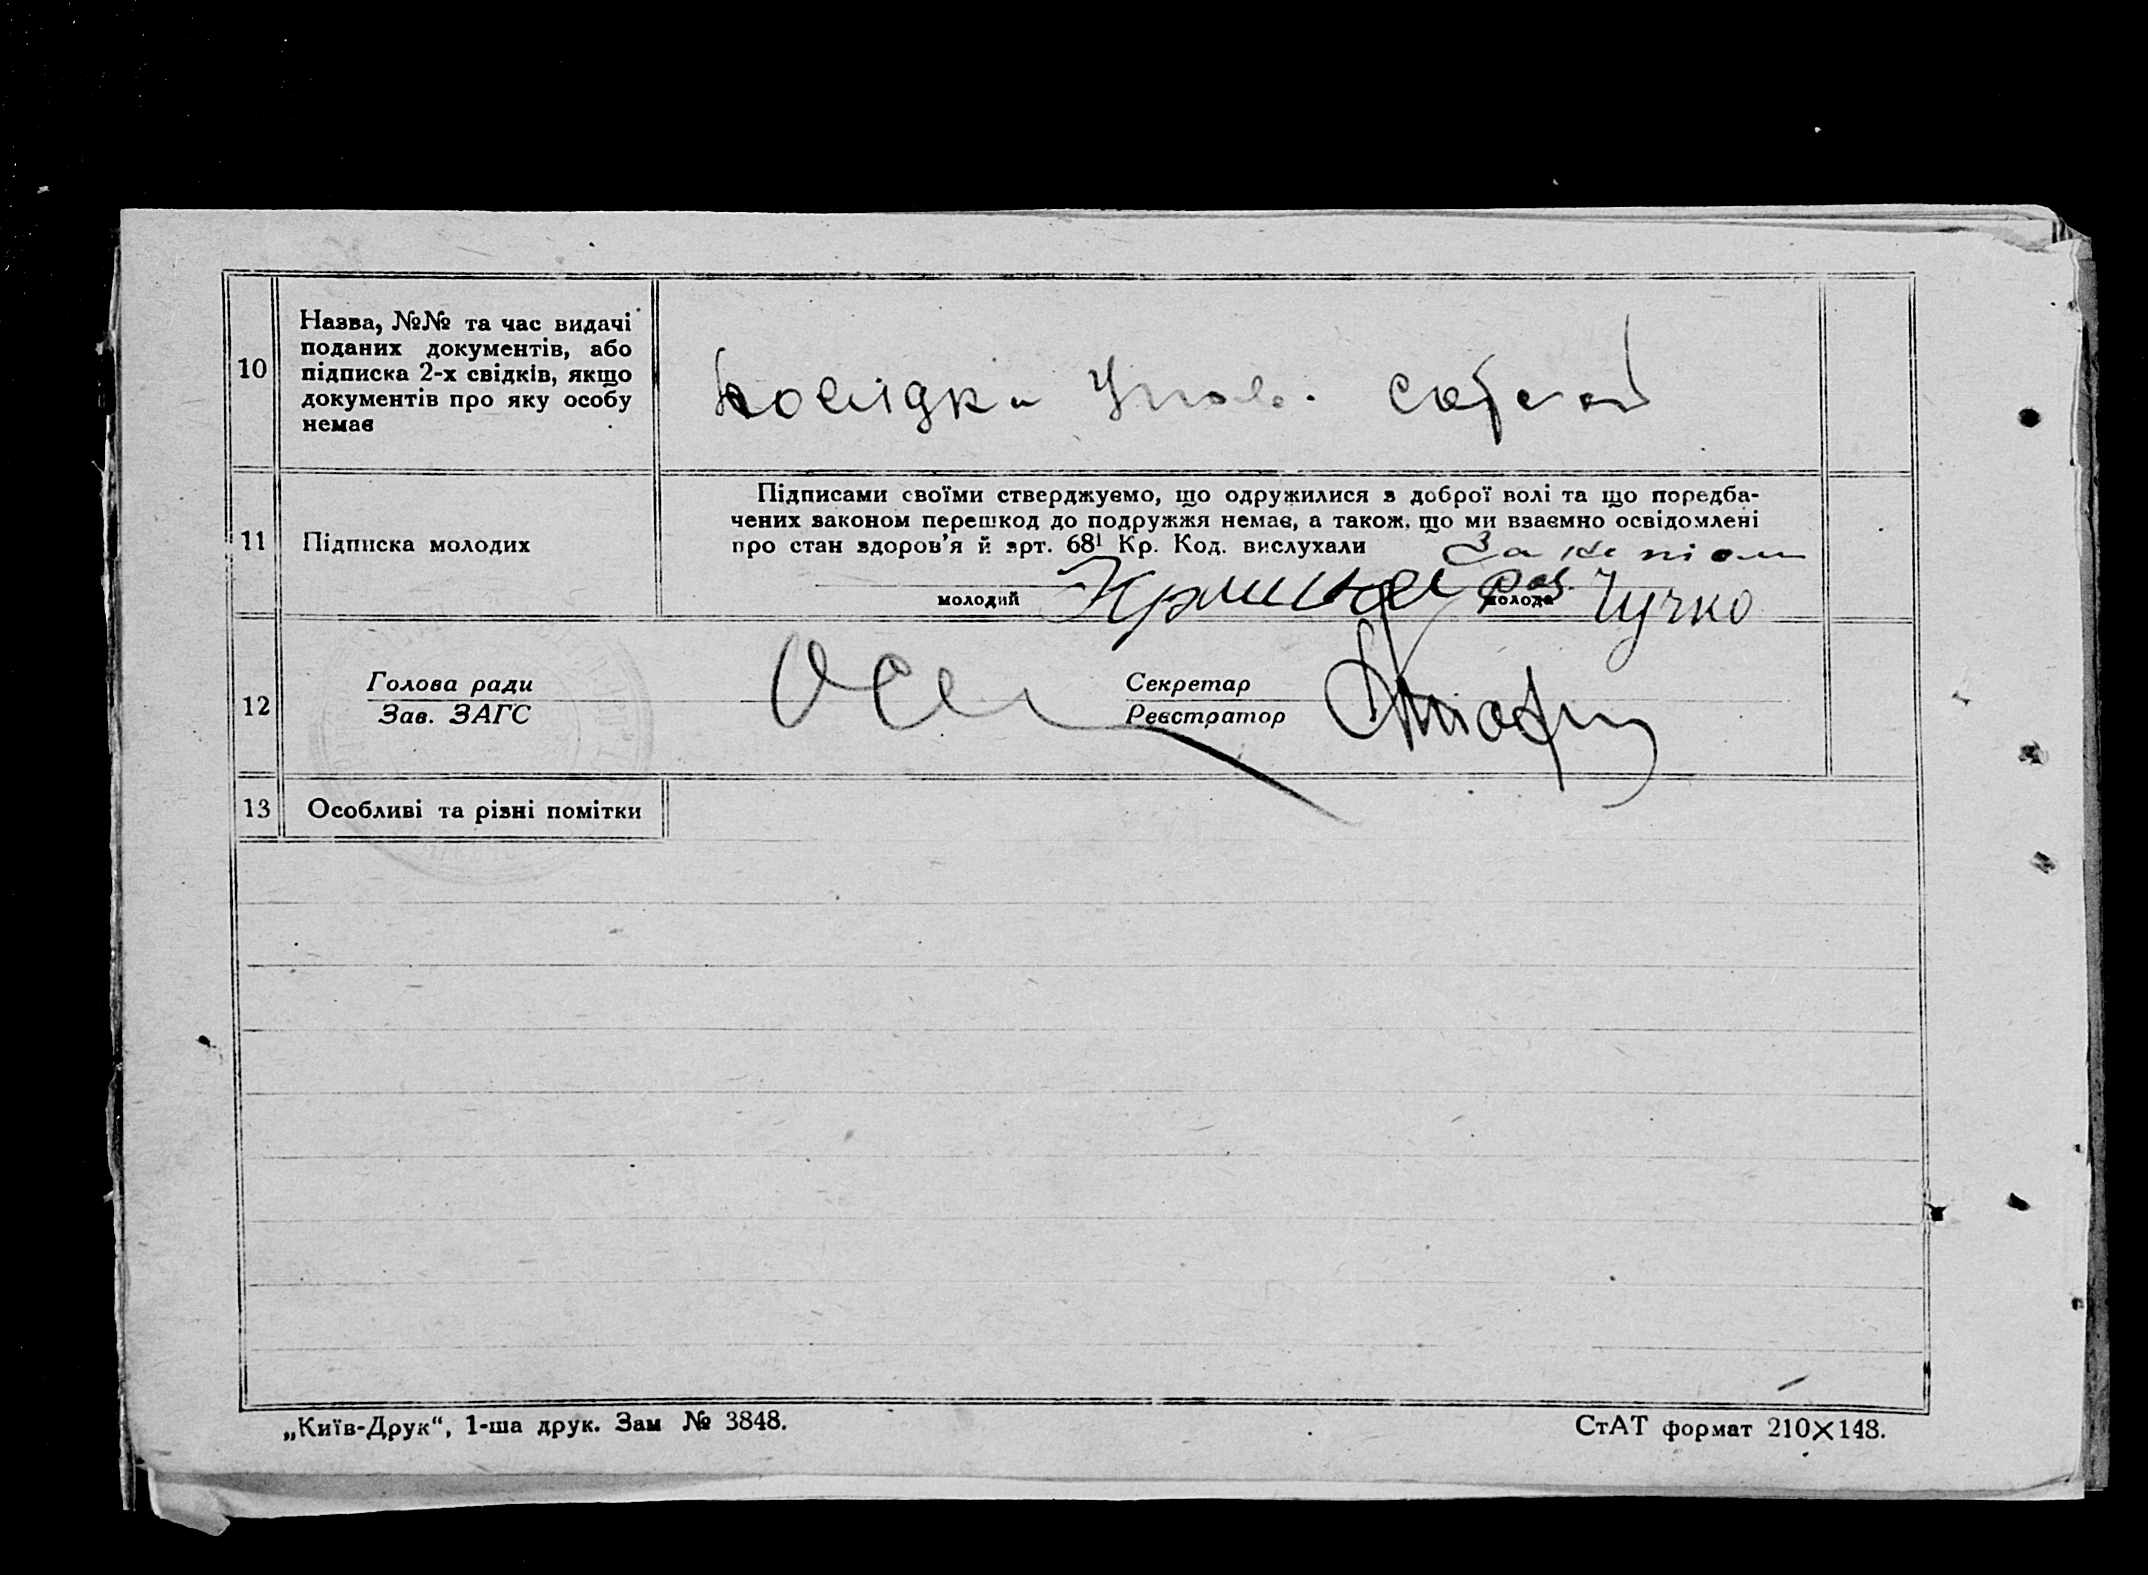 10
Назва, №№ та час видачі
поданих документів, або
підписка 2-х свідків, якщо
документів про яку особу
немає
посвідки
11
Підписка молодих
Підписами своїми стверджуємо, що одружилися з доброї волі та що поредба-
чених законом перешкод до подружжя немає, а також, що ми взаємно освідомлені
про стан здоров’я й арт. 68¹ Кр. Код. вислухали
молодий
молода Чучко
12
Голова ради
Зав. ЗАГС
Секретар
Реєстратор
13
Особливі та різні помітки
„Київ-Друк“, 1-ша друк. Зам № 3848.
СтАТ формат 210×148.